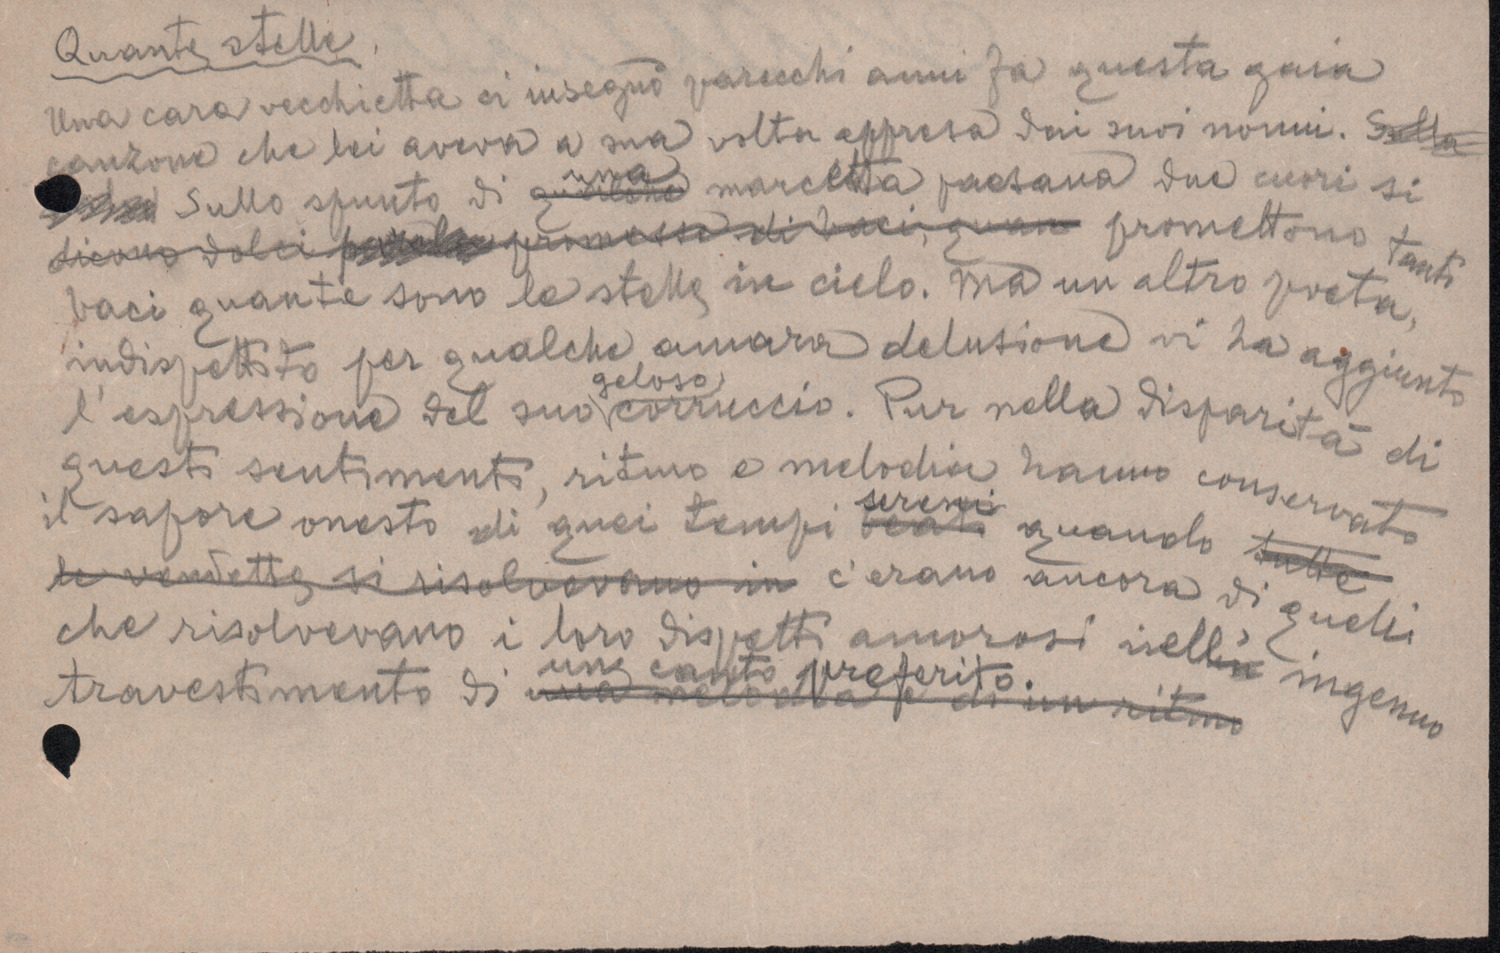 Quante stelle.
Una cara vecchietta ci insegnò parecchi anni fa questa gaia
canzone che lei aveva a sua volta appresa dai suoi nonni. Sulla
Sullo spunto di una marcetta paesana due cuori si
dicono dolci parole promesse di baci, quan promettono tanti
baci quante sono le stelle in cielo. Ma un altro poeta,
indispettito per qualche amara delusione vi ha aggiunto
l'espressione del suo geloso corruccio. Pur nella disparità di
questi sentimenti, ritmo e melodia hanno conservato
il sapore onesto di quei tempi beati sereni quando tutte
le vendette si risolvevano in c'erano ancora di quelli
che risolvevano i loro dispetti amorosi nell' ingenuo
travestimento di un canto preferito.
una melodia e di un ritmo